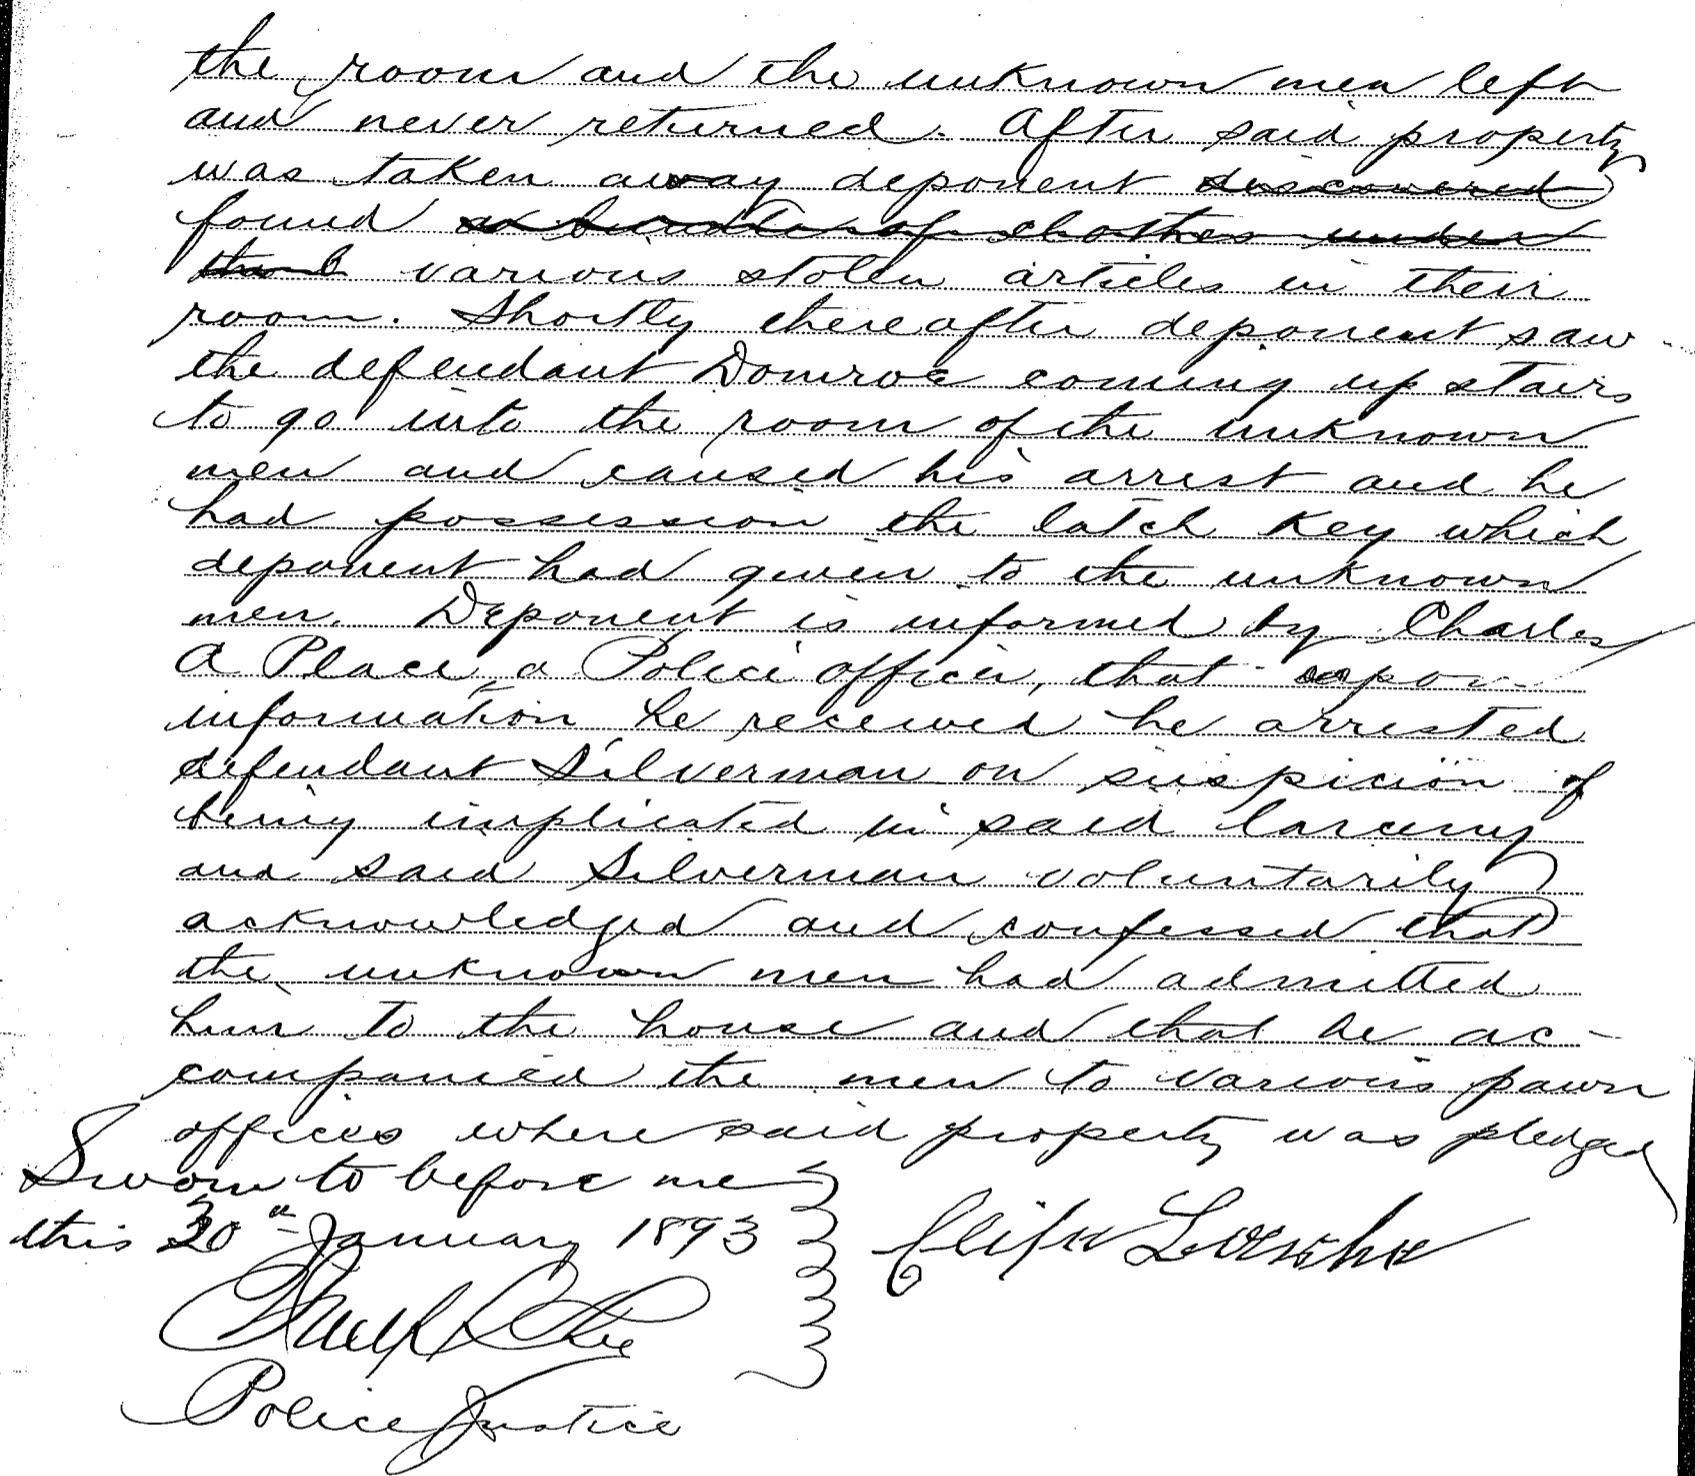 the room and the unknown men left
and never returned. After said property
was taken away deponent discovered
found a bundle of clothes under
the b various stolen articles in their
room. Shortly thereafter deponent saw
the defendant Domroe coming up stairs
to go into the room of the unknown
men and caused his arrest and he
had possession the latch key which
deponent had given to the unknown
men. Deponent is informed by Charles
A Place, a Police officer, that upon
information he received he arrested
defendant Silverman on suspicion of
being implicated in said larceny
and said Silverman voluntarily
acknowledged and confessed that
the unknown men had admitted
him to the house and that he ac-
companied the men to various pawn
offices where said property was pledged
Sworn to before me
this 20th January 1893
Police Justice